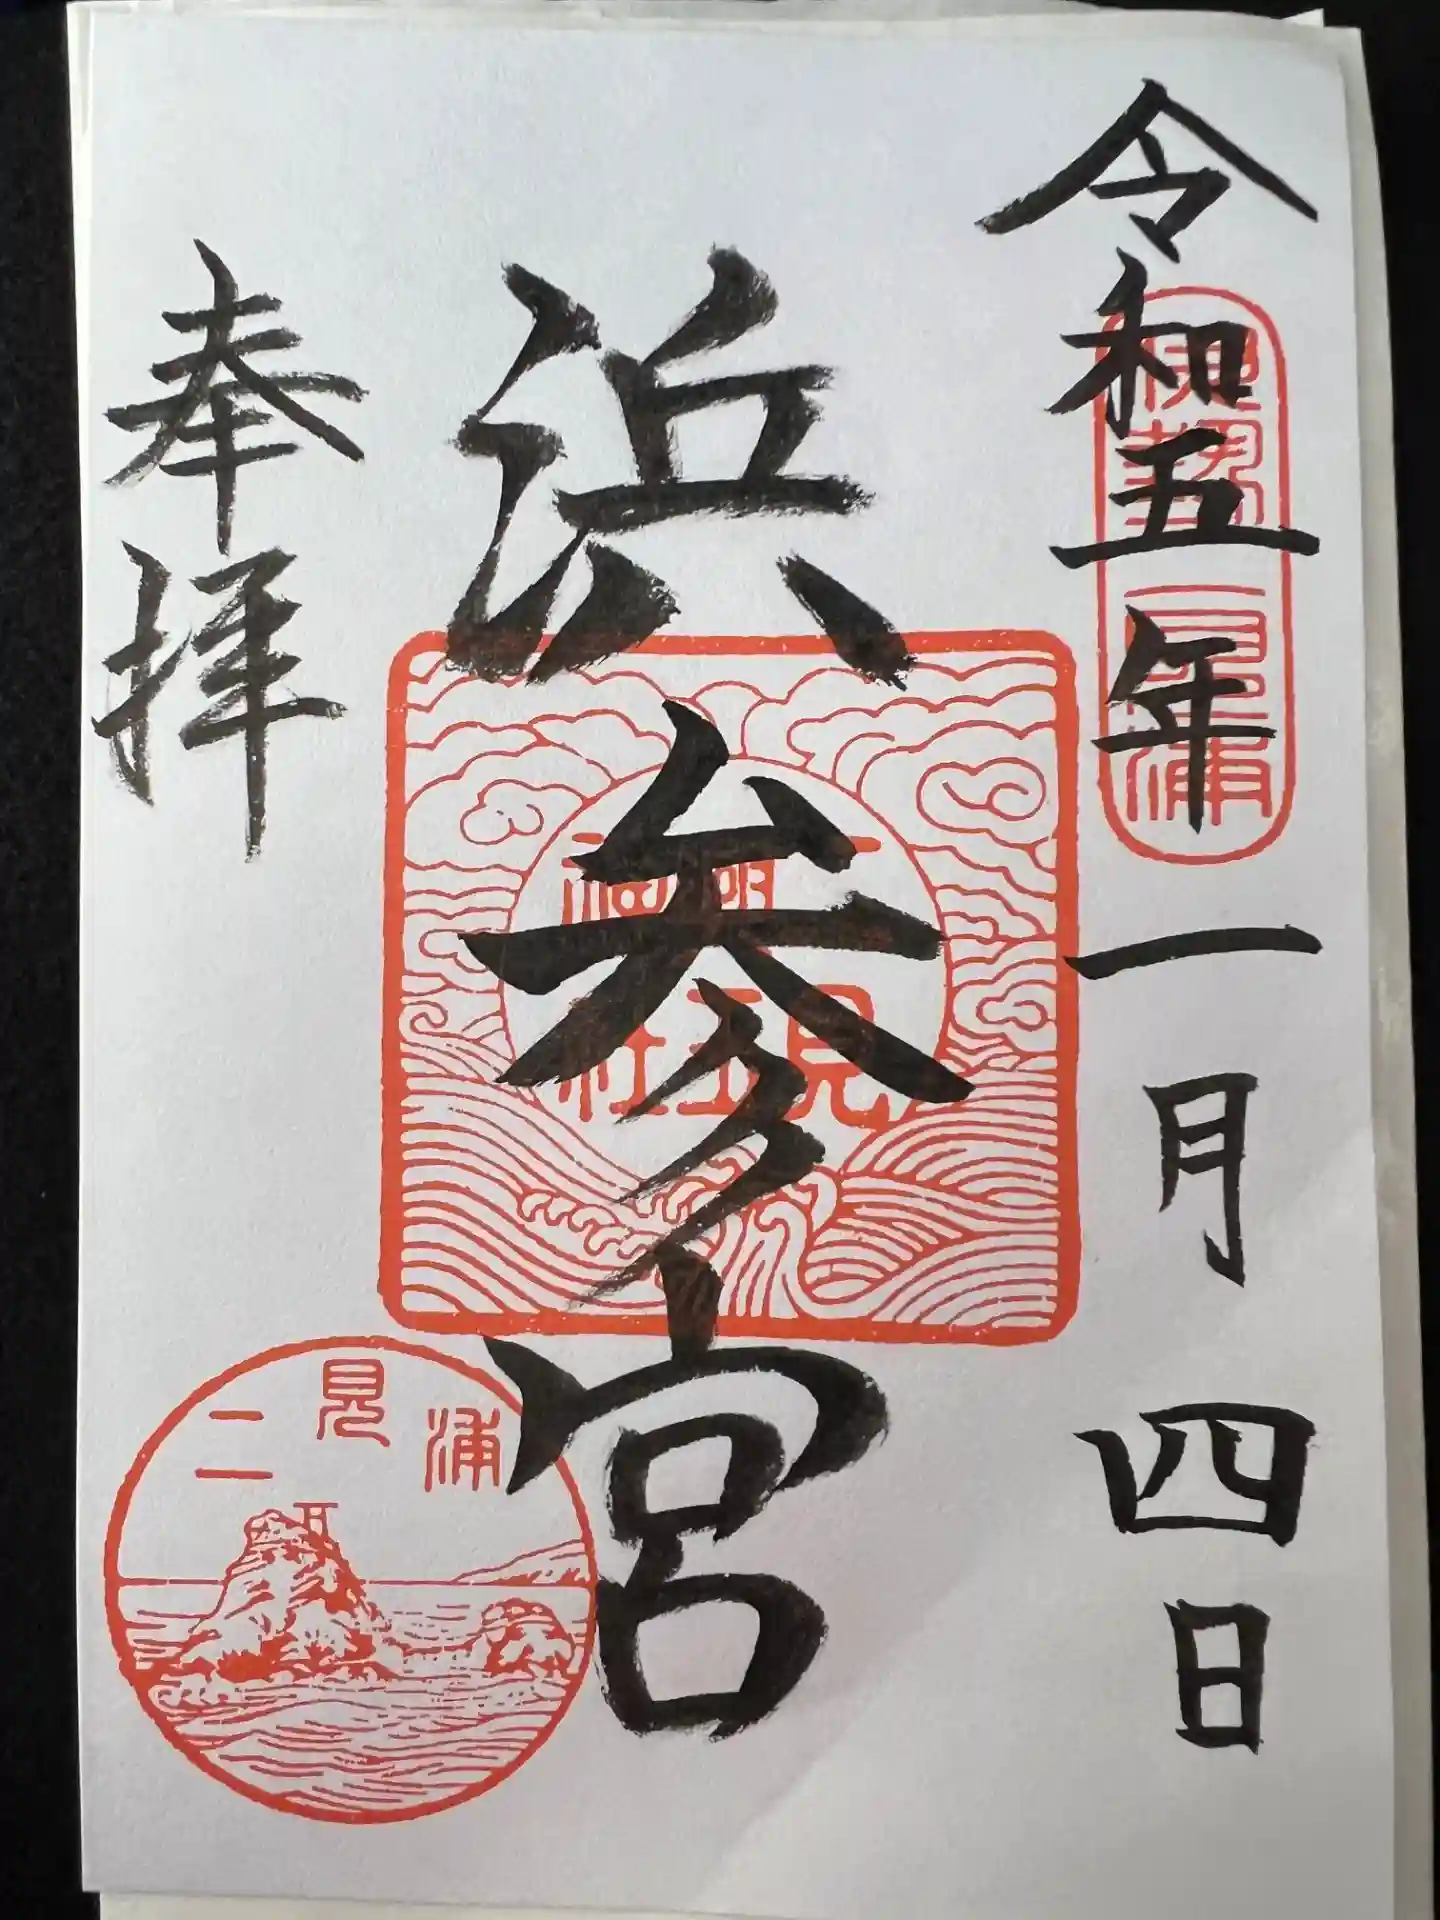 令和五年一月四日
伊勢二見浦
浜参宮
二見
興玉
神社
奉拝
二見浦